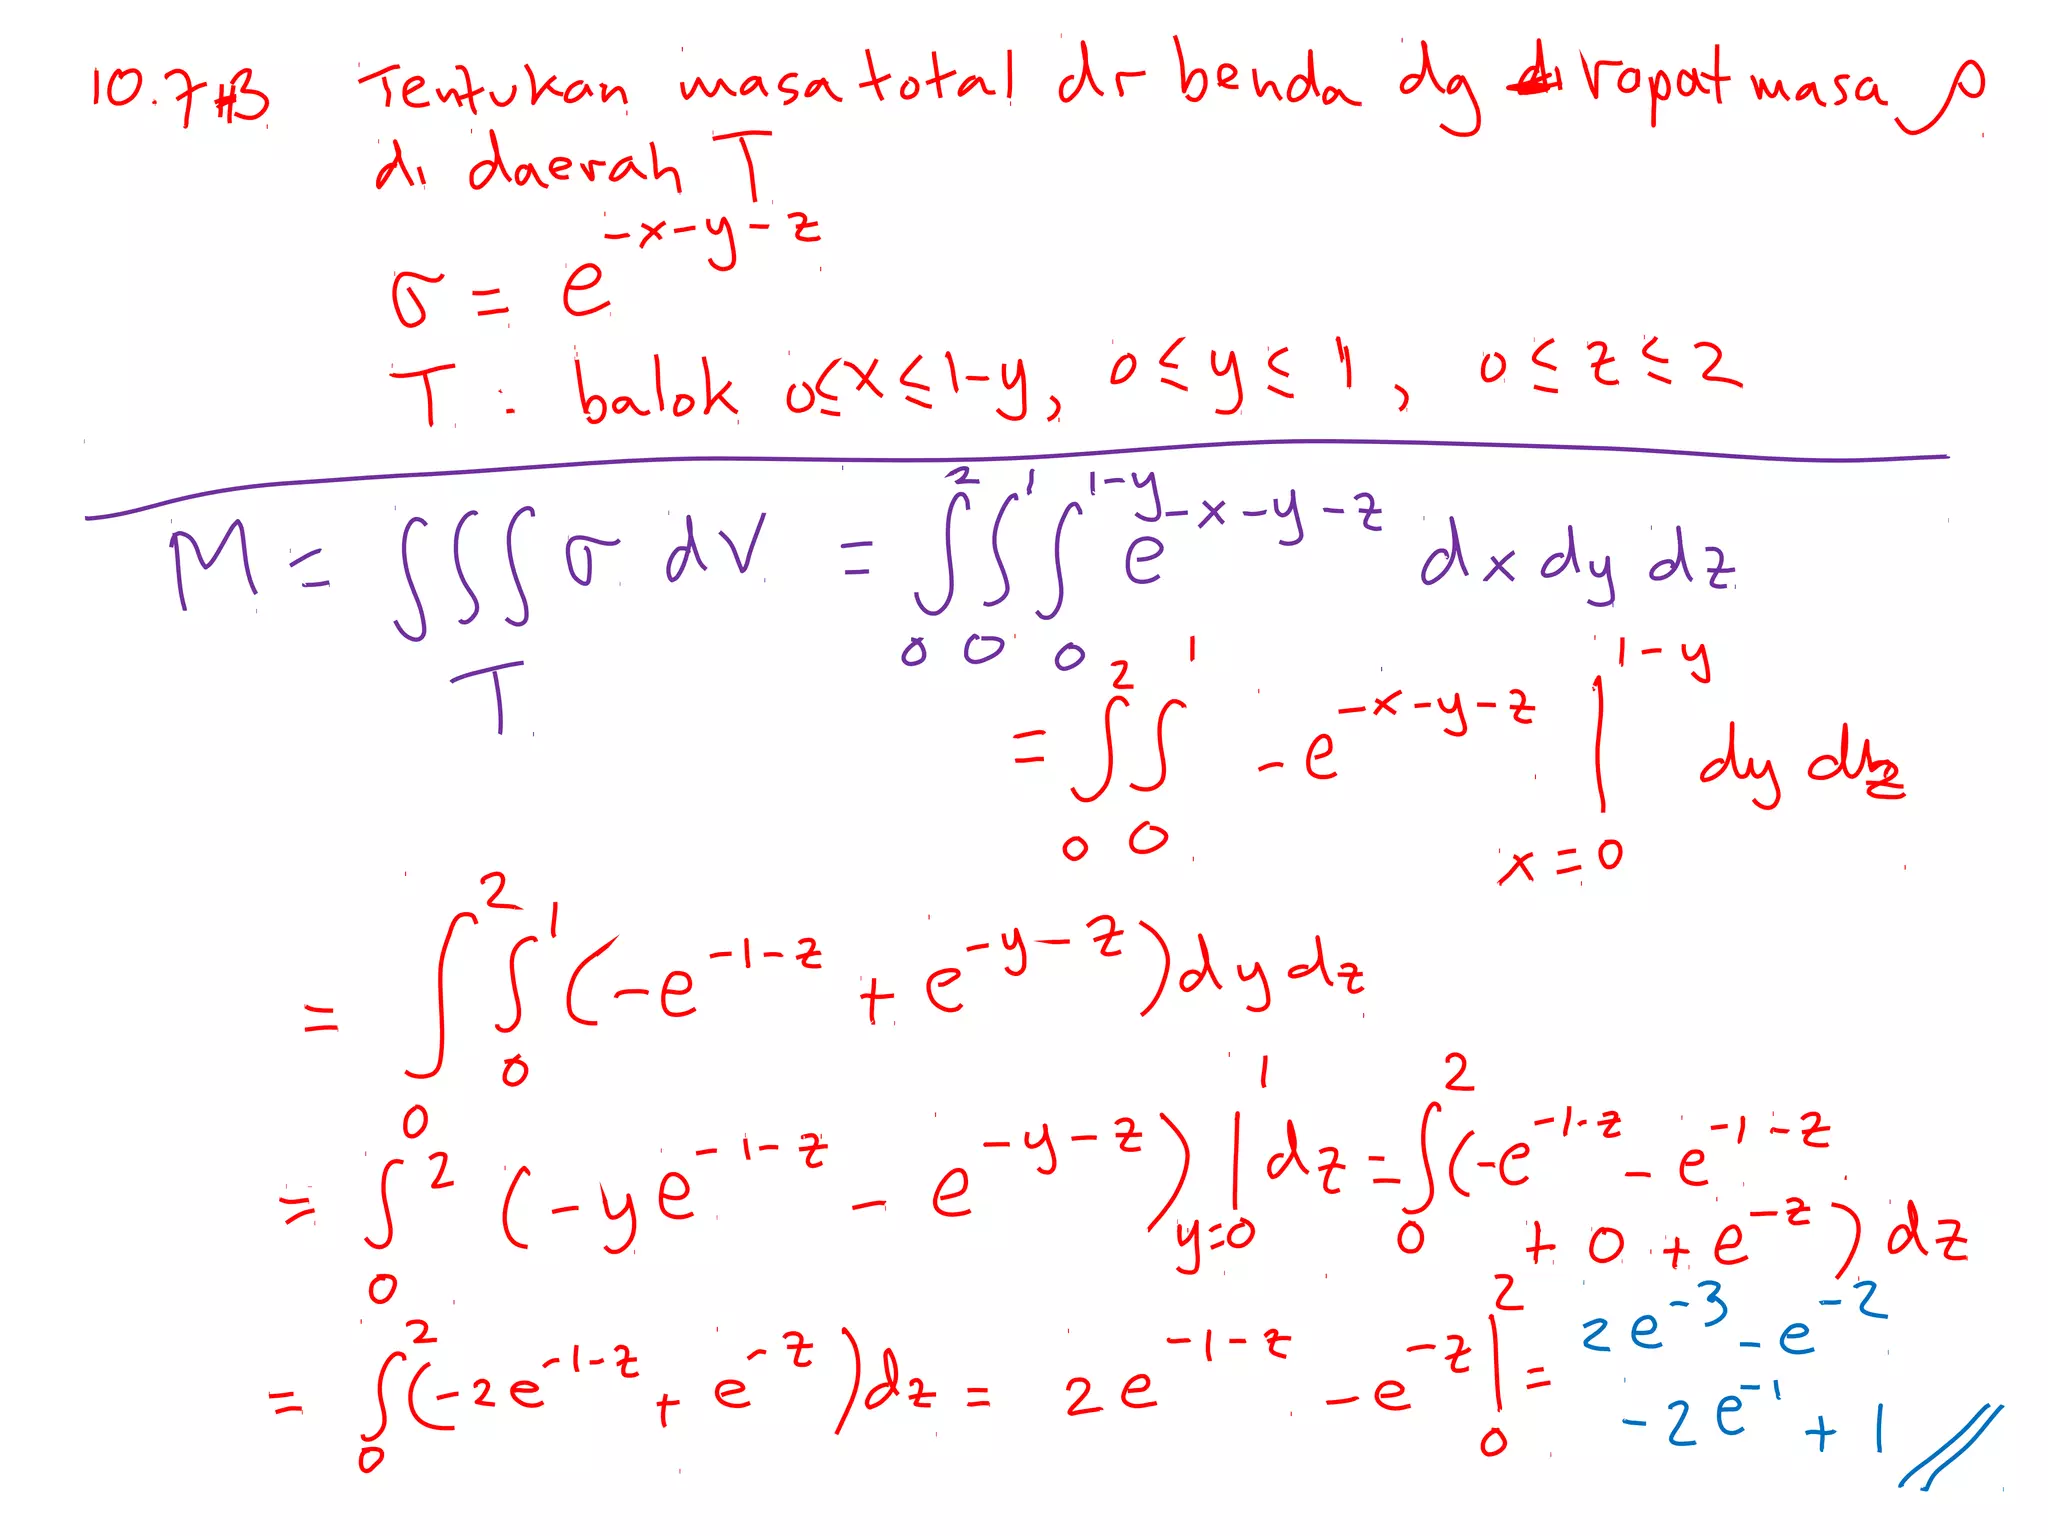 10.7#3 Tentukan masa total dr benda dg rapat masa ρ
di daerah T
σ = e^{-x-y-z}
T : balok 0≤x≤1-y, 0≤y≤1, 0≤z≤2
M = ∭_T σ dV = ∫_0^2 ∫_0^1 ∫_0^{1-y} e^{-x-y-z} dx dy dz
= ∫_0^2 ∫_0^1 -e^{-x-y-z} |_{x=0}^{1-y} dy dz
= ∫_0^2 ∫_0^1 (-e^{-1-z} + e^{-y-z}) dy dz
= ∫_0^2 (-ye^{-1-z} - e^{-y-z}) |_{y=0}^1 dz = ∫_0^2 (-e^{-1-z} - e^{-1-z}
+ 0 + e^{-z}) dz
= ∫_0^2 (-2e^{-1-z} + e^{-z}) dz = 2e^{-1-z} - e^{-z} |_0^2 = 2e^{-3} - e^{-2}
-2e^{-1} + 1 //